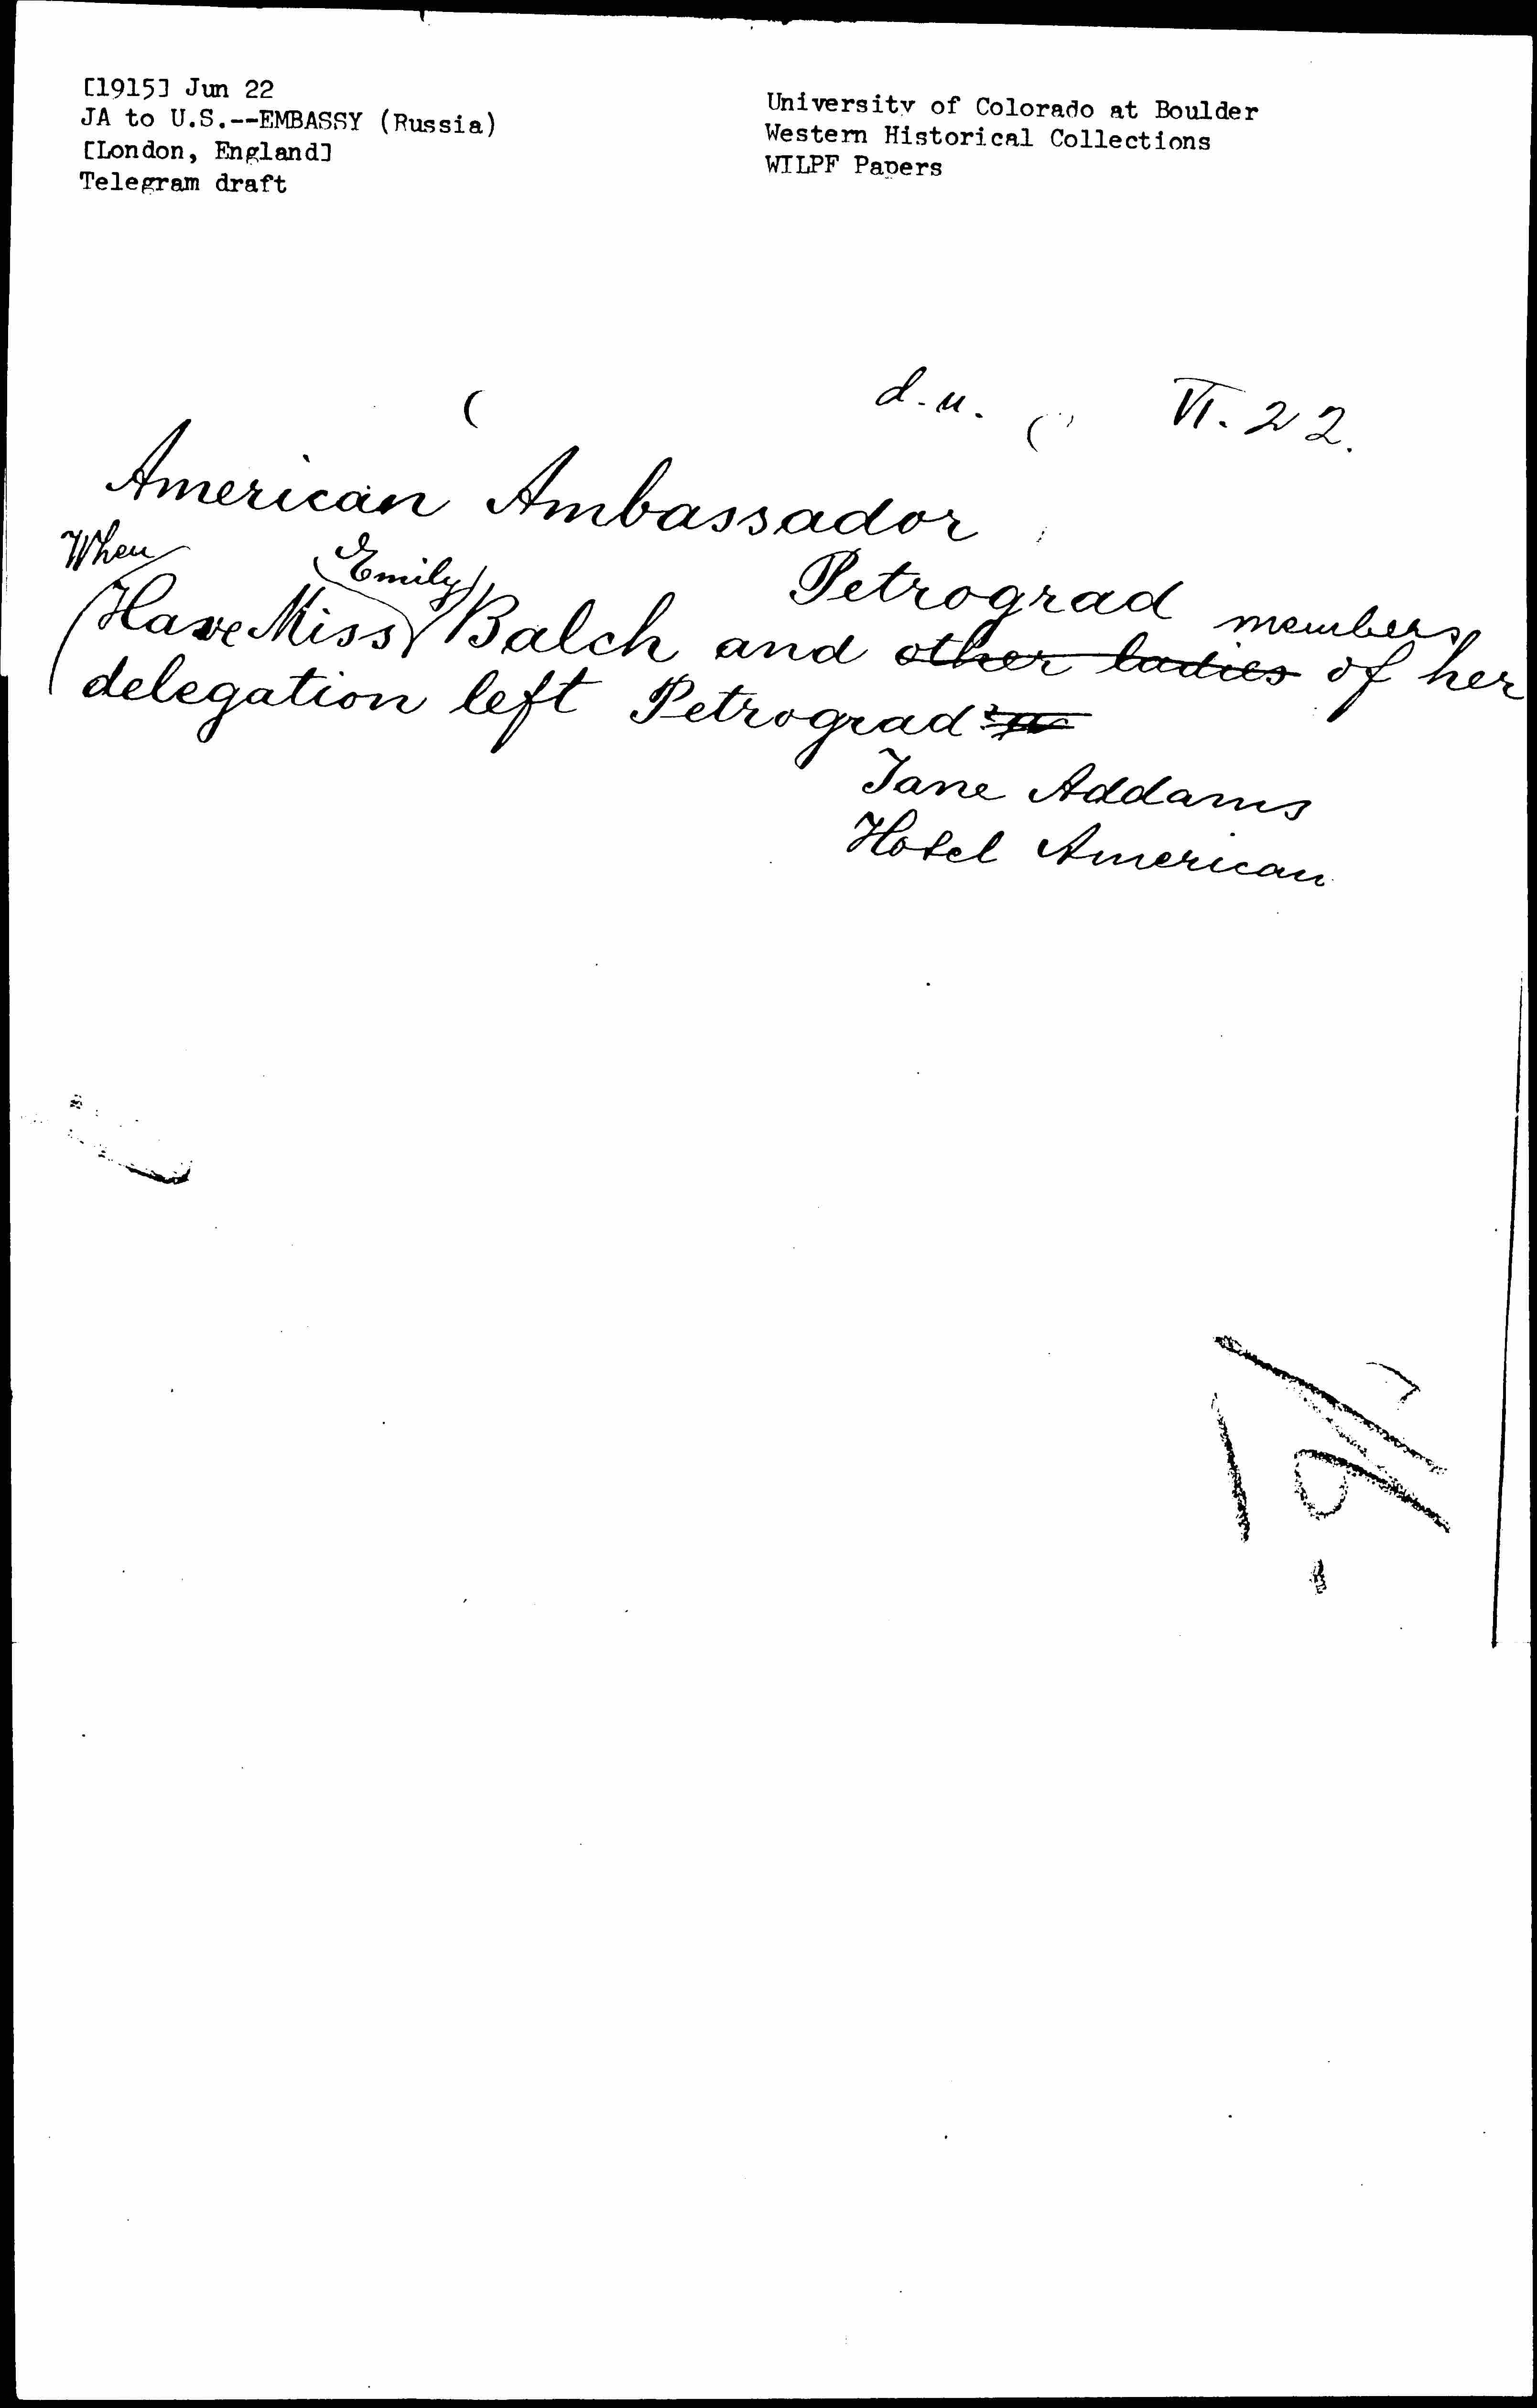 [1915] Jun 22
JA to U.S.--EMBASSY (Russia)
[London, England]
Telegram draft
University of Colorado at Boulder
Western Historical Collections
WILPF Papers
d.u. VI. 22.
American Ambassador
Petrograd
When Emily members
Have Miss Balch and other ladies of her
delegation left Petrograd
Jane Addams
Hotel American